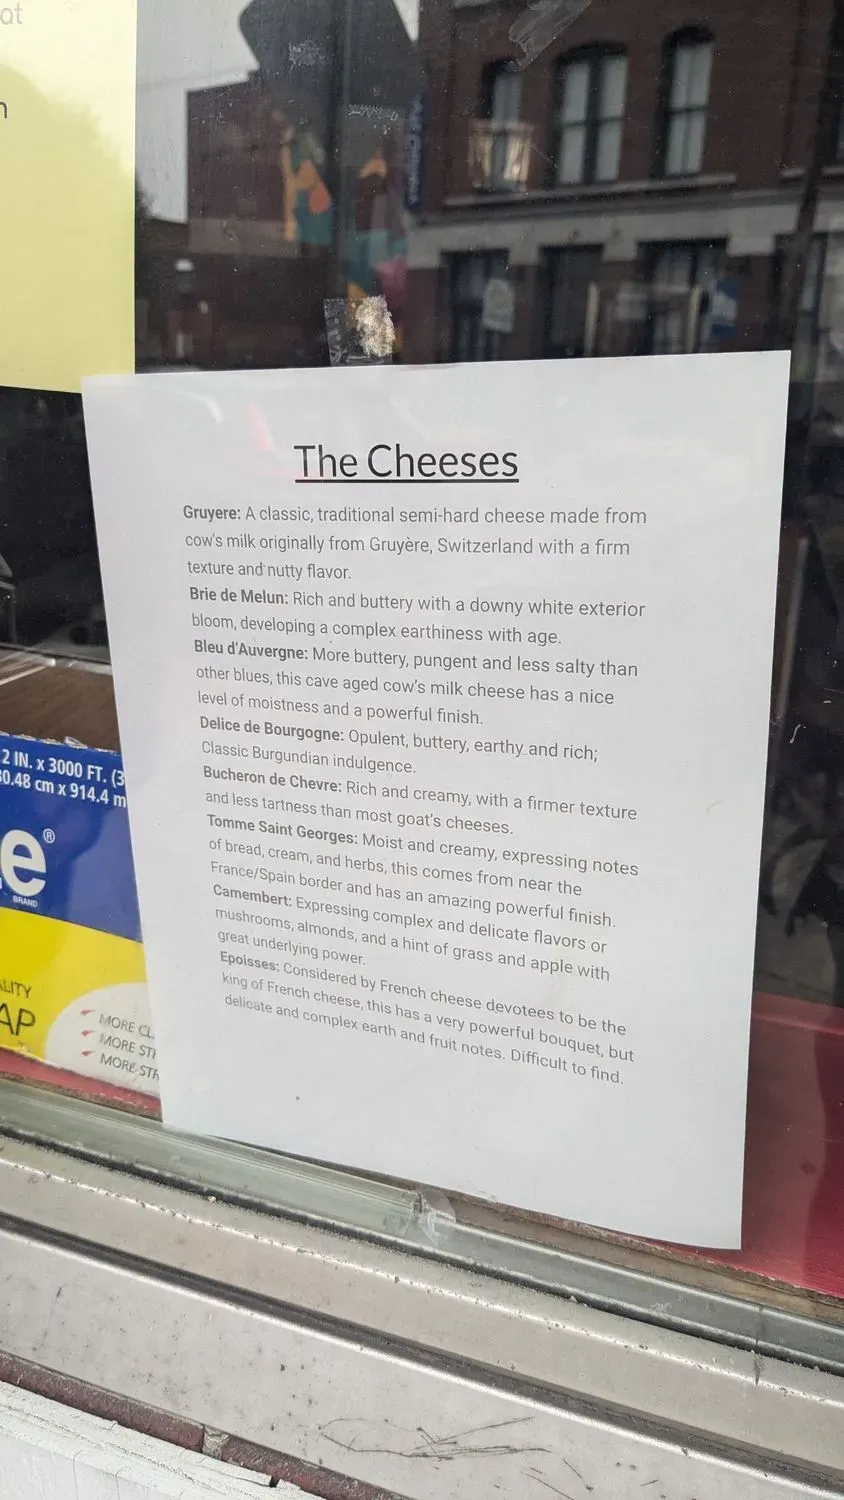 at
n
The Cheeses
Gruyere: A classic, traditional semi-hard cheese made from
cow's milk originally from Gruyère, Switzerland with a firm
texture and nutty flavor.
Brie de Melun: Rich and buttery with a downy white exterior
bloom, developing a complex earthiness with age.
Bleu d'Auvergne: More buttery, pungent and less salty than
other blues, this cave aged cow's milk cheese has a nice
level of moistness and a powerful finish.
Delice de Bourgogne: Opulent, buttery, earthy and rich;
Classic Burgundian indulgence.
Bucheron de Chevre: Rich and creamy, with a firmer texture
and less tartness than most goat's cheeses.
Tomme Saint Georges: Moist and creamy, expressing notes
of bread, cream, and herbs, this comes from near the
France/Spain border and has an amazing powerful finish.
Camembert: Expressing complex and delicate flavors or
mushrooms, almonds, and a hint of grass and apple with
great underlying power.
Epoisses: Considered by French cheese devotees to be the
king of French cheese, this has a very powerful bouquet, but
delicate and complex earth and fruit notes. Difficult to find.
2 IN. x 3000 FT. (3
30.48 cm x 914.4 m
e®
BRAND
ALITY
AP
MORE CL
MORE STR
MORE STR